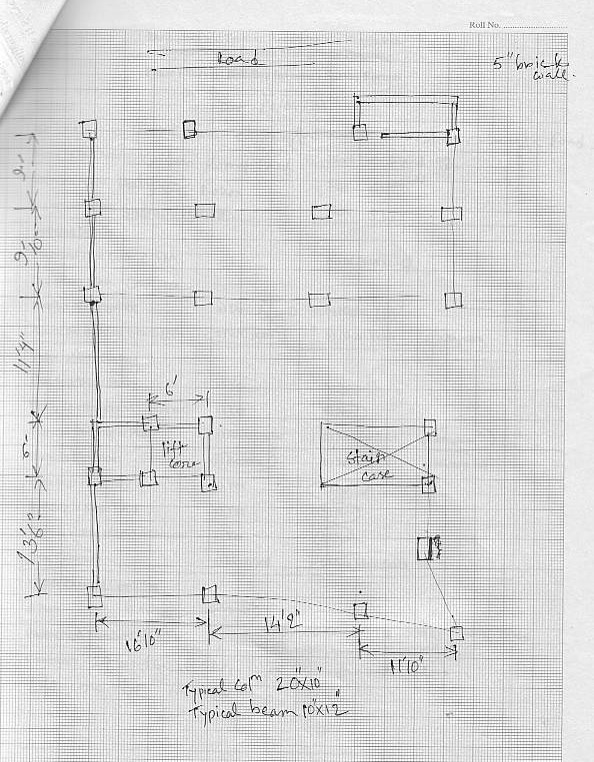 Roll No.
Road
5" brick
wall.
11'4"
6'
lift
core
Stair
case
13'6"
16'10"
14'2"
11'10"
Typical colm 20"x10"
Typical beam 10"x12"